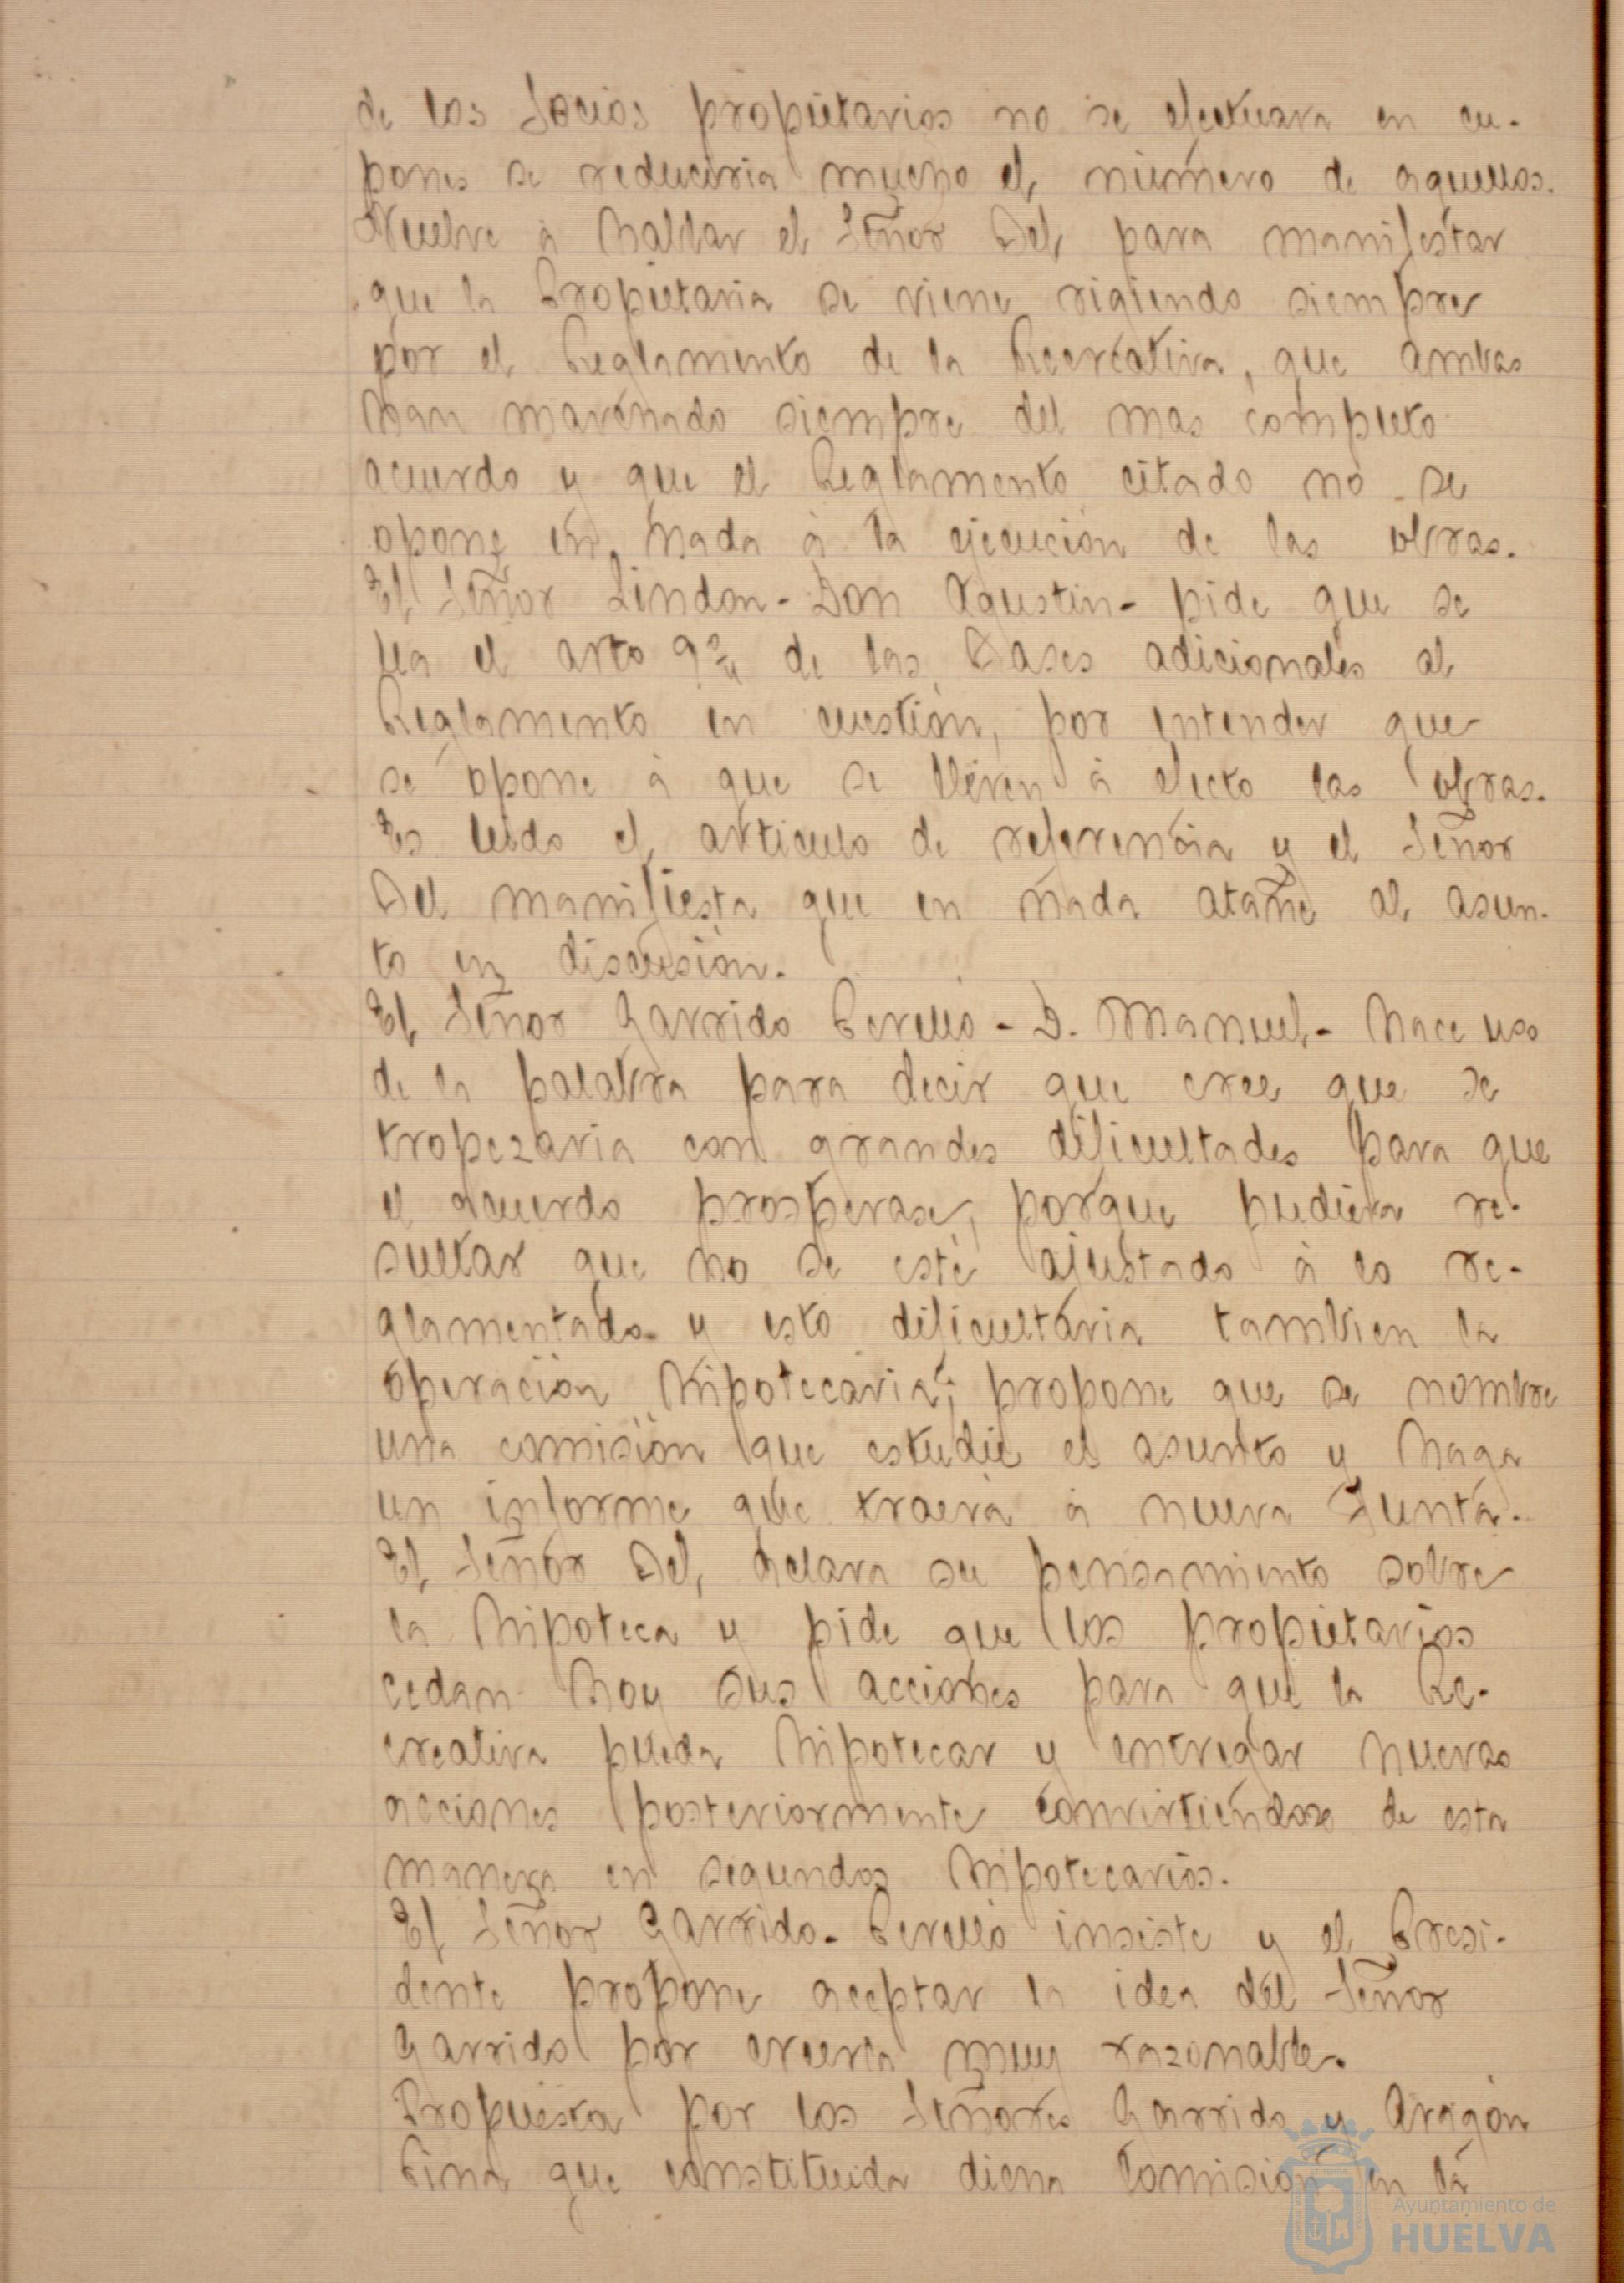 de los Socios propietarios no se efectuara en cu-
pones se reduciria mucho el número de aquellos.
Vuelve á hablar el Señor Del para manifestar
que la Propietaria se viene rigiendo siempre
por el Reglamento de la Recreativa, que ambas
han marchado siempre del mas completo
acuerdo y que el Reglamento citado no se
opone en nada á la ejecución de las obras.
El Señor Lindon - Don Agustin - pide que se
lea el arto 9º de las Bases adicionales al
Reglamento en cuestión, por entender que
se opone á que se lleven á efecto las obras.
Es leido el articulo de referencia y el Señor
Del manifiesta que en nada atañe al asun-
to en discusión.
El Señor Garrido Perelló - D. Manuel - hace uso
de la palabra para decir que cree que se
tropezaria con grandes dificultades para que
el acuerdo prosperase, porque pudiera re-
sultar que no se esté ajustado á lo re-
glamentado y esto dificultaria tambien la
operación hipotecaria; propone que se nombre
una comisión que estudie el asunto y haga
un informe que traerá á nueva Junta.
El Señor Del, aclara su pensamiento sobre
la hipoteca y pide que los propietarios
cedan hoy sus acciones para que la Re-
creativa pueda hipotecar y entregar nuevas
acciones posteriormente convirtiéndose de esta
manera en segundos hipotecarios.
El Señor Garrido-Perelló insiste y el Presi-
dente propone aceptar la idea del Señor
Garrido por creerla muy razonable.
Propuesta por los Señores Garrido y Aragón
Pina que constituida dicha Comisión en la
Ayuntamiento de
HUELVA